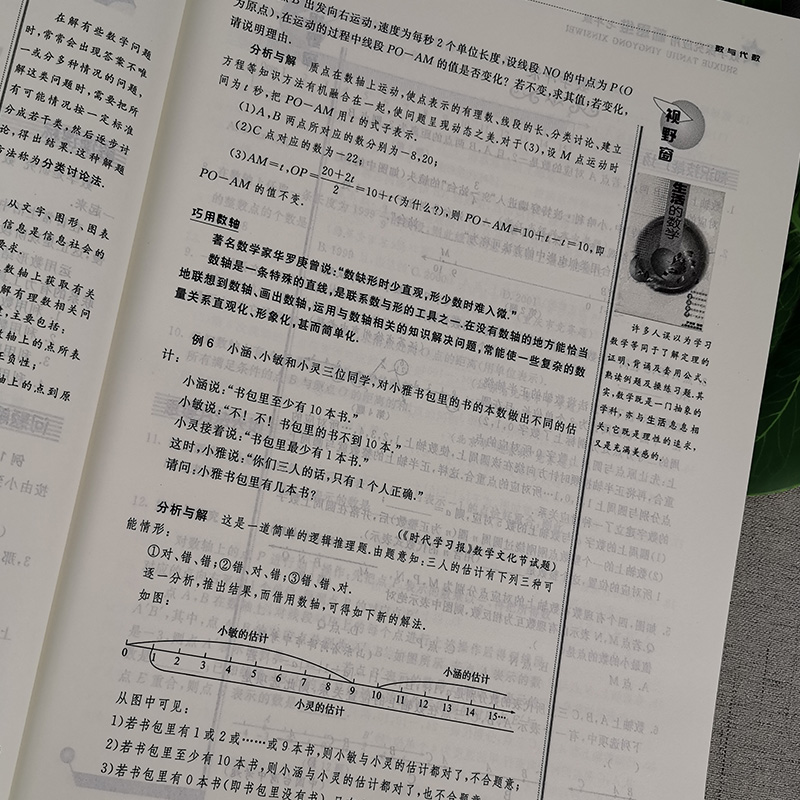 数与代数
B 出发向右运动,速度为每秒 2 个单位长度,设线段 NO 的中点为 P(O
为原点),在运动的过程中线段 PO-AM 的值是否变化?若不变,求其值;若变化,
请说明理由.
分析与解 质点在数轴上运动,使点表示的有理数、线段的长、分类讨论、建立
方程等知识方法有机融合在一起,使问题呈现动态之美.对于(3),设 M 点运动时
间为 t 秒,把 PO-AM 用 t 的式子表示.
(1)A,B 两点所对应的数分别为-8,20;
(2)C 点对应的数为-22;
(3)AM=t,OP=(20+2t)/2=10+t(为什么?),则 PO-AM=10+t-t=10,即
PO-AM 的值不变.
巧用数轴
著名数学家华罗庚曾说:“数缺形时少直观,形少数时难入微.”
数轴是一条特殊的直线,是联系数与形的工具之一.在没有数轴的地方能恰当
地联想到数轴、画出数轴,运用与数轴相关的知识解决问题,常能使一些复杂的数
量关系直观化、形象化,甚而简单化.
例 6 小涵、小敏和小灵三位同学,对小雅书包里的书的本数做出不同的估
计:
小涵说:“书包里至少有 10 本书.”
小敏说:“不!不!书包里的书不到 10 本.”
小灵接着说:“书包里最少有 1 本书.”
这时,小雅说:“你们三人的话,只有 1 个人正确.”
请问:小雅书包里有几本书?
(《时代学习报》数学文化节试题)
分析与解 这是一道简单的逻辑推理题.由题意知:三人的估计有下列三种可
能情形:
①对、错、错;②错、对、错;③错、错、对.
逐一分析,推出结果,而借用数轴,可得如下新的解法.
如图:
小敏的估计
小涵的估计
0 1 2 3 4 5 6 7 8 9 10 11 12 13 14 15…
小灵的估计
从图中可见:
1)若书包里有 1 或 2 或……或 9 本书,则小敏与小灵的估计都对了,不合题意;
2)若书包里至少有 10 本书,则小涵与小灵的估计都对了,也不合题意;
3)若书包里有 0 本书(即书包里没有书)
视野窗
生活的数学
许多人误以为学习
数学等同于了解定理的
证明、背诵及套用公式、
熟读例题及操练习题.其
实,数学既是一门抽象的
学科,亦与生活息息相
关;它既是理性的追求,
又是充满美感的.
在解有些数学问题
时,常常会出现答案不唯
一或分多种情况的问题,
解这类问题时,需要把所
有可能情况按一定标准
分成若干类,然后逐步讨
论,得出结果.这种解题
方法称为分类讨论法.
从文字、图形、图表
信息是信息社会的
要求.
数轴上获取有关
解有理数相关问
,主要包括:
轴上的点所表
正负性;
轴上的点到原